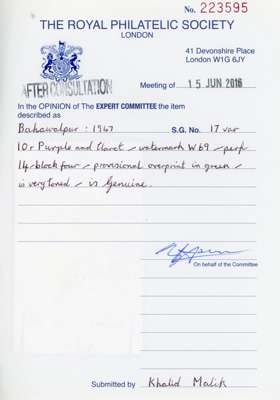 No. 223595
THE ROYAL PHILATELIC SOCIETY
LONDON
41 Devonshire Place
London W1G 6JY
AFTER CONSULTATION
Meeting of 15 JUN 2016
In the OPINION of The EXPERT COMMITTEE the item
described as
Bahawalpur : 1947 S.G. No. 17 var
10r Purple and Claret - watermark W69 - perf
14 - block four - provisional overprint in green -
is very toned - is Genuine.
On behalf of the Committee
Submitted by Khalid Malik